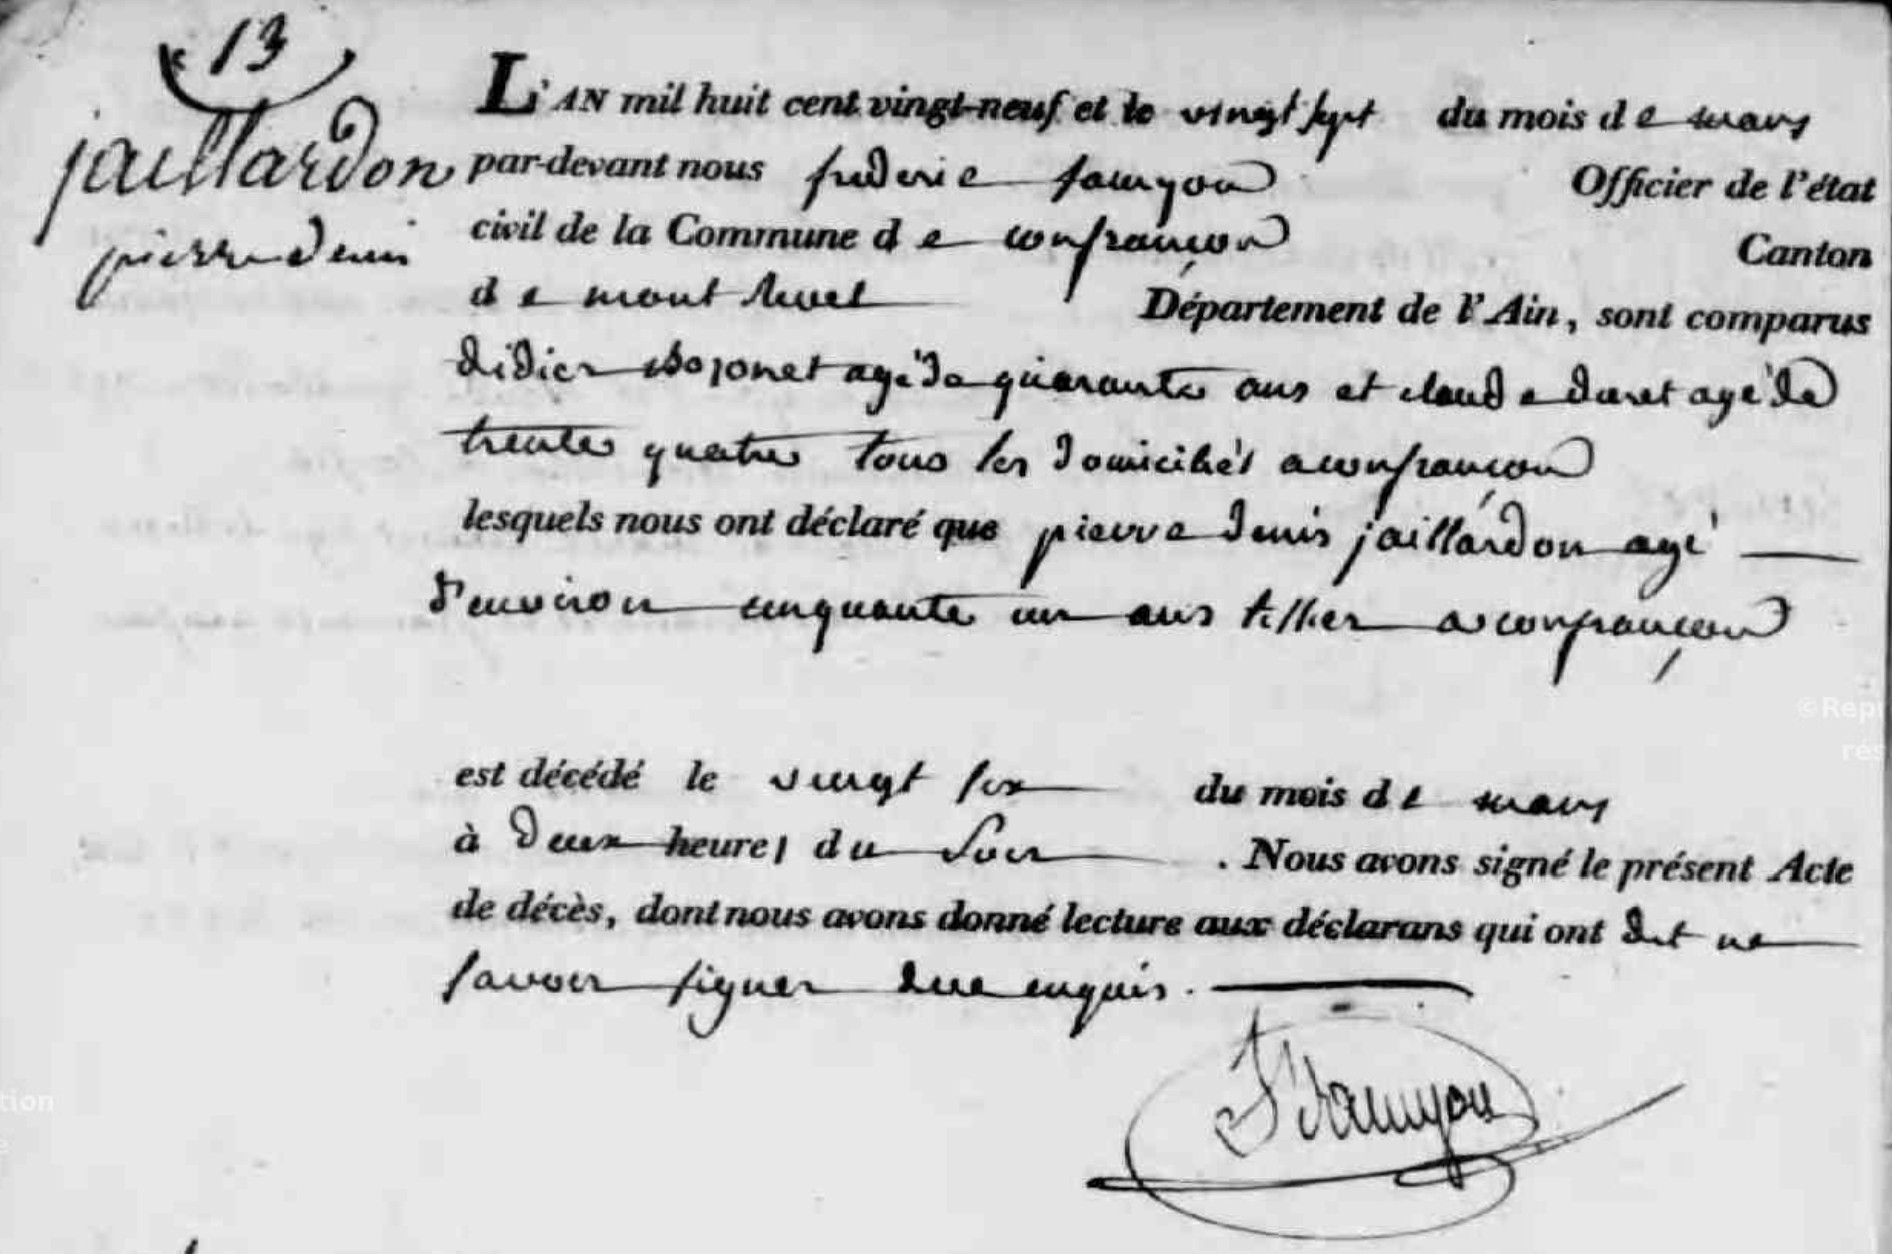 13
jaillardon
pierre denis
L'AN mil huit cent vingt-neuf et le vingt sept du mois de mars
par-devant nous frederic Officier de l'état
civil de la Commune de confrançon Canton
de mont revel Département de l'Ain, sont comparus
didier agé de quarante ans et claude agé de
trente quatre tous les domiciliés a confrançon
lesquels nous ont déclaré que pierre denis jaillardon agé
d'environ cinquante un ans a confrançon
est décédé le vingt six du mois de mars
à deux heures du soir . Nous avons signé le présent Acte
de décès, dont nous avons donné lecture aux déclarans qui ont dit ne
savoir signer enquis.
©Rep
rés
tion
e